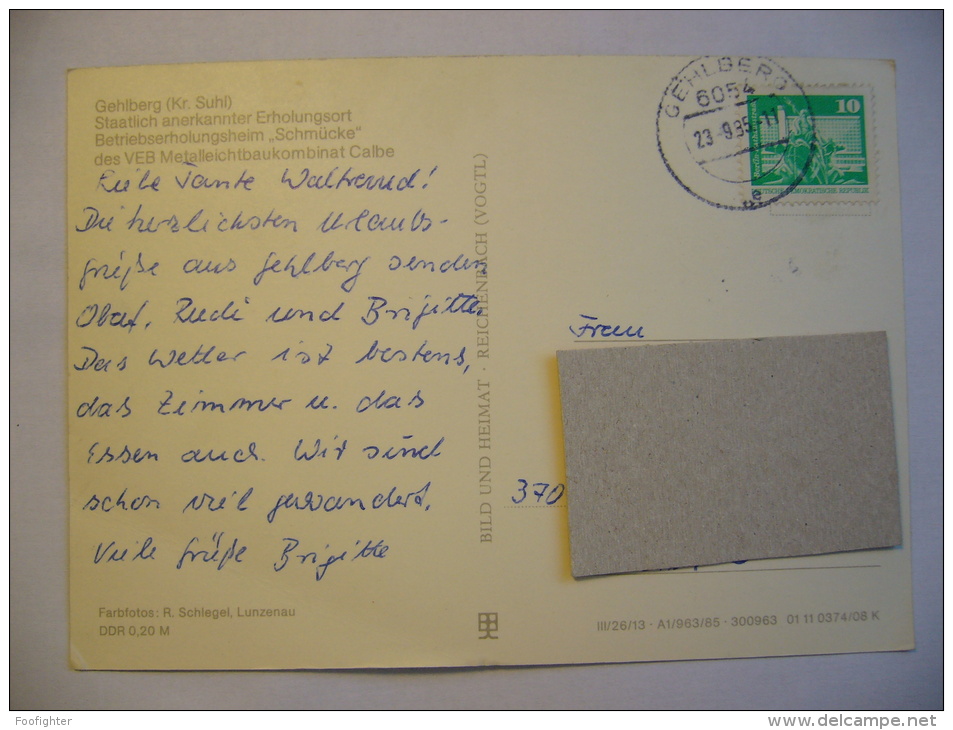 Gehlberg (Kr. Suhl)
Staatlich anerkannter Erholungsort
Betriebserholungsheim „Schmücke"
des VEB Metalleichtbaukombinat Calbe
Liebe Tante Waltraud!
Die herzlichsten Urlaubs-
grüße aus Gehlberg senden
Rudi und Brigitte.
Das Wetter ist bestens,
das Zimmer u. das
Essen auch. Wir sind
schon viel gewandert.
Viele Grüße Brigitte
Farbfotos: R. Schlegel, Lunzenau
DDR 0,20 M
BILD UND HEIMAT · REICHENBACH (VOGTL)
GEHLBERG
6054
23.-9.85-11
10
DEUTSCHE DEMOKRATISCHE REPUBLIK
Frau
370
III/26/13 · A1/963/85 · 300963 01 11 0374/08 K
Foofighter
www.delcampe.net